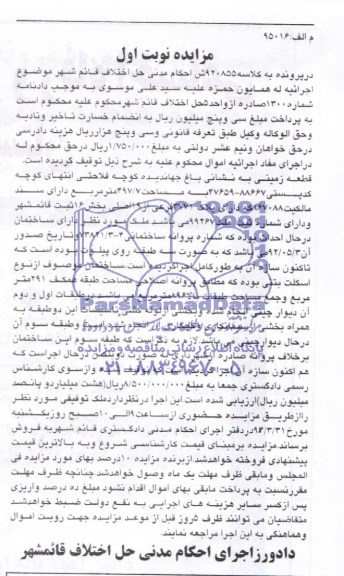 م الف:۹۵۰۱۶
مزایده نوبت اول
درپرونده به کلاسه۹۲۰۸۵۵ش احکام مدنی حل اختلاف قائم شهر موضوع
اجرائیه له همایون حمزه علیه سید علی موسوی به موجب دادنامه
شماره ۱۳۰۰صادره ازواحد۵حل اختلاف قائم شهرمحکوم علیه محکوم است
به پرداخت مبلغ سی وپنج میلیون ریال به انضمام خسارت تاخیر وتادیه
وحق الوکاله وکیل طبق تعرفه قانونی وسی وپنج هزارریال هزینه دادرسی
درحق خواهان ونیم عشر دولتی به مبلغ ۱/۷۵۰/۰۰۰ریال درحق محکوم له
دراجرای مفاد اجرائیه اموال محکوم علیه به شرح ذیل توقیف گردیده است.
قطعه زمینی به نشانی باغ جهاندیده کوچه فلاحتی انتهای کوچه
کدپستی۸۸۶۶۷-۴۷۶۵۹به مساحت۴۹۷,۷مترمربع دارای سند
مالکیت۱۶۷۰۸۸که دارای پلاک اصلی بخش۱۶ثبت قائمشهر
ودارای شماره ثبت ملک۹۹۲۶۷می باشد ملک مورد نظر دارای ساختمان
درحال احداث بوده که شماره پروانه ساختمانی۳-۷۳۸۲۱/۳وتاریخ صدور
آن۹۲/۰۵/۳می باشد که به صورت سه طبقه روی پیلوت بوده است که
تاکنون سازه آن به طور کامل اجراگردیده است ساختمان موصوف ازنوع
اسکلت بتنی بوده که مطابق پروانه اصلاحی مساحت طبقه همکف ۲۹۱متر
مربع وجمع مساحت طبقات بالا۸۹۶مترمربع می باشد درطبقات اول و دوم
آن دیوار چینی انجام
همراه بخشی ازسفیدکاری طبقه سوم آن
درحال دیوارچینی می باشد.لازم به ذکر است که طبقه سوم این ساختمان
برخلاف پروانه صادره ازشهرداری به صورت دوبلکس درحال اجراست که
هم اکنون سازه آن اجرا وازسوی کارشناس
رسمی دادگستری جمعا به مبلغ۸/۵۰۰/۰۰۰/۰۰۰ریال(هشت میلیاردو پانصد
میلیون ریال)ارزیابی شده است این اجرا درنظرداردملک توقیفی مورد نظر
راازطریق مزایده حضوری ازساعت۹الی۱۰صبح روزیکشنبه
مورخ ۹۴/۳/۳۱دردفتر اجرای احکام مدنی دادگستری قائم شهربه فروش
برساند.مزایده برمبنای قیمت کارشناسی شروع وبه بالاترین قیمت
پیشنهادی فروخته خواهدشد.ازبرنده مزایده ۱۰درصد بهای مورد مزایده فی
المجلس ومابقی ظرف مهلت یک ماه وصول خواهدشد چنانچه ظرف مهلت
مقررنسبت به پرداخت مابقی بهای اموال اقدام نشود مبلغ ده درصد واریزی
پس ازکسر سایر هزینه های اجرایی به نفع دولت ضبط خواهدشد
متقاضیان می توانند ظرف ۵روز قبل از موعد مزایده جهت رویت اموال
وهماهنگی به این اجرا مراجعه نمایند.
دادورزاجرای احکام مدنی حل اختلاف قائمشهر
ParsNamadData
پایگاه اطلاع رسانی مناقصه و مزایده
۰۲۱-۸۸۳۴۹۶۷۰-۵